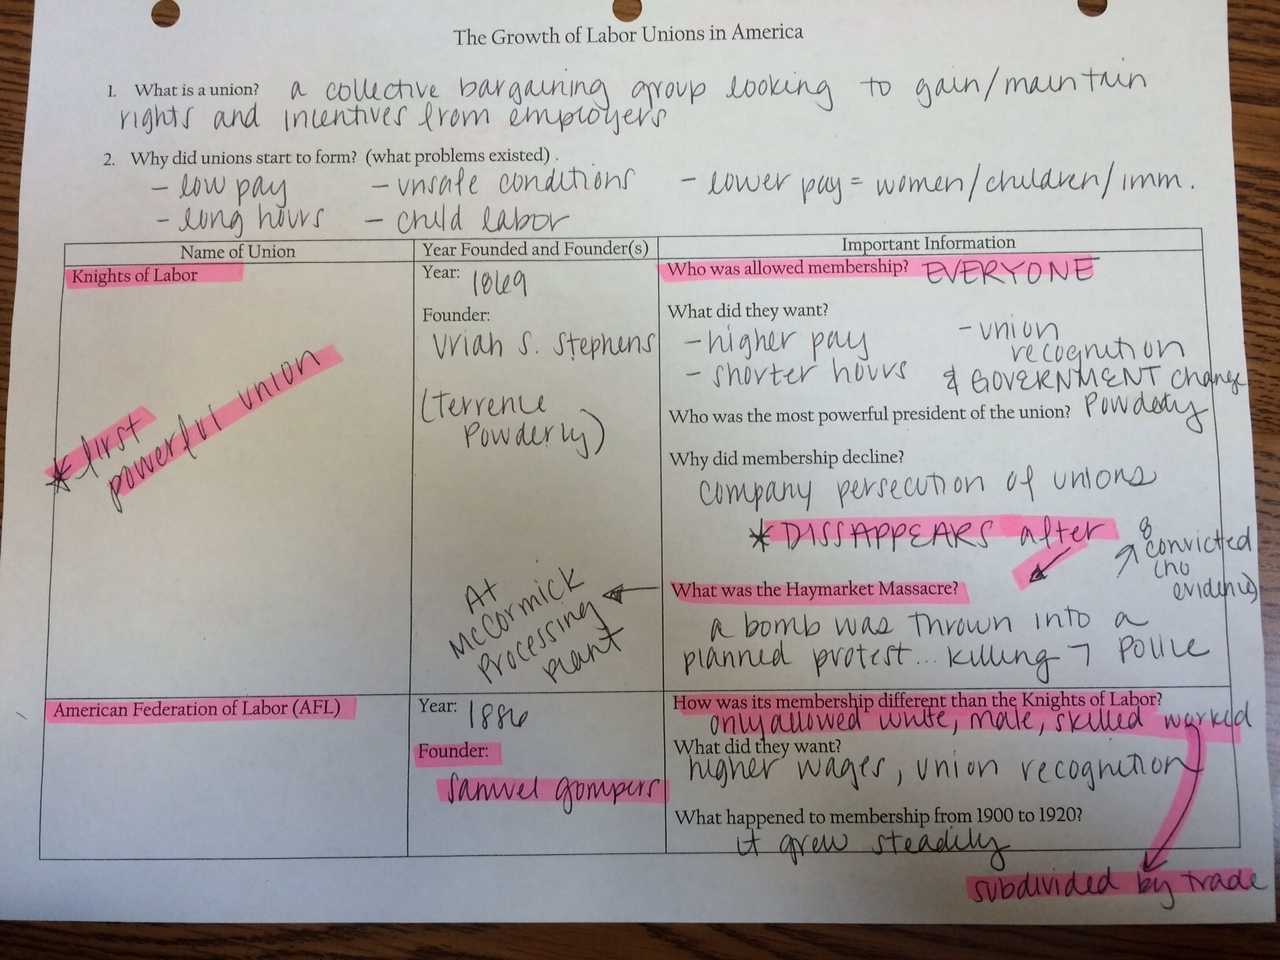 The Growth of Labor Unions in America
1. What is a union? a collective bargaining group looking to gain/maintain
rights and incentives from employers
2. Why did unions start to form? (what problems existed).
- low pay - unsafe conditions - lower pay = women/children/imm.
- long hours - child labor
Name of Union Year Founded and Founder(s) Important Information
Knights of Labor
* first
powerful union
Year: 1869
Founder:
Uriah S. Stephens
(Terrence
Powderly)
Who was allowed membership? EVERYONE
What did they want?
- higher pay
- shorter hours
- union
recognition
& GOVERNMENT change
Who was the most powerful president of the union? Powderly
Why did membership decline?
company persecution of unions
* DISSAPPEARS after
8
convicted
(no
evidence)
What was the Haymarket Massacre?
At
McCormick
Processing
plant
a bomb was thrown into a
planned protest... killing 7 police
American Federation of Labor (AFL)
Year: 1886
Founder:
Samuel Gompers
How was its membership different than the Knights of Labor?
only allowed white, male, skilled worked
What did they want?
higher wages, union recognition
What happened to membership from 1900 to 1920?
it grew steadily
subdivided by trade